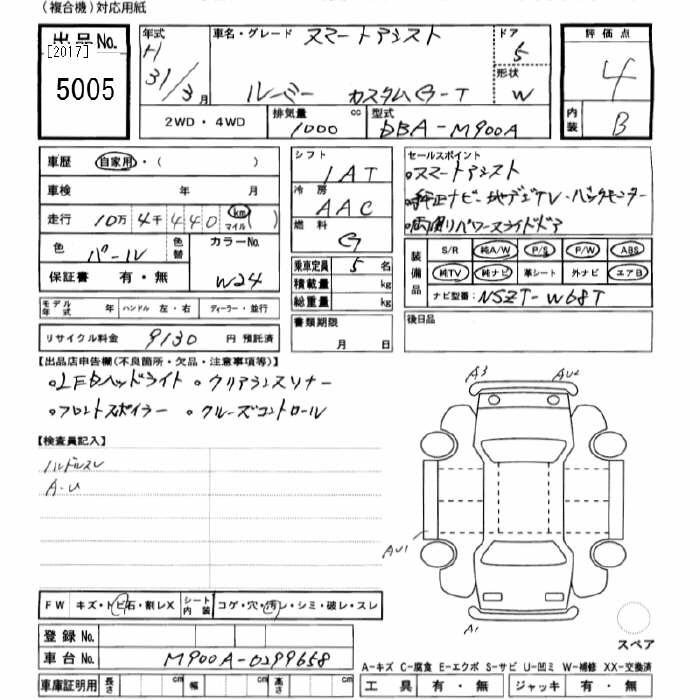 (複合機)対応用紙
出品No.
[2017]
5005
年式 H 31/3月
車名・グレード スマートアシスト
ルーミー カスタムG-T
ドア 5
形状 W
2WD・4WD
排気量 1000 cc
型式 DBA-M900A
評価点 4
内装 B
車歴 自家用・( )
車検 年 月
走行 10万 4千 4 4 0 km マイル
色 パール 色替
カラーNo. W24
保証書 有・無
モデル年式 年 ハンドル 左・右 ディーラー・並行
リサイクル料金 9130 円 預託済
シフト IAT
冷房 AAC
燃料 G
乗車定員 5 名
積載量 kg
総重量 kg
書類期限 月 日
セールスポイント
・スマートアシスト
・純正ナビ・地デジTV・バックモニター
・両側パワースライドドア
装備品 S/R 純A/W P/S P/W ABS
純TV 純ナビ 革シート 外ナビ エアB
ナビ型番: NSZT-W68T
後日品
【出品店申告欄(不良箇所・欠品・注意事項等)】
・LEDヘッドライト ・クリアランスソナー
・フロントスポイラー ・クルーズコントロール
【検査員記入】
ハンドルスレ
A・U
A3
AU2
AU1
A1
FW キズ・トビ石・割レX シート内装 コゲ・穴・汚レ・シミ・破レ・スレ
登録No.
車台No. M900A-0299658
車庫証明用 長さ cm 幅 cm 高さ cm
スペア
A-キズ C-腐食 E-エクボ S-サビ U-凹ミ W-補修 XX-交換済
工具 有・無 ジャッキ 有・無